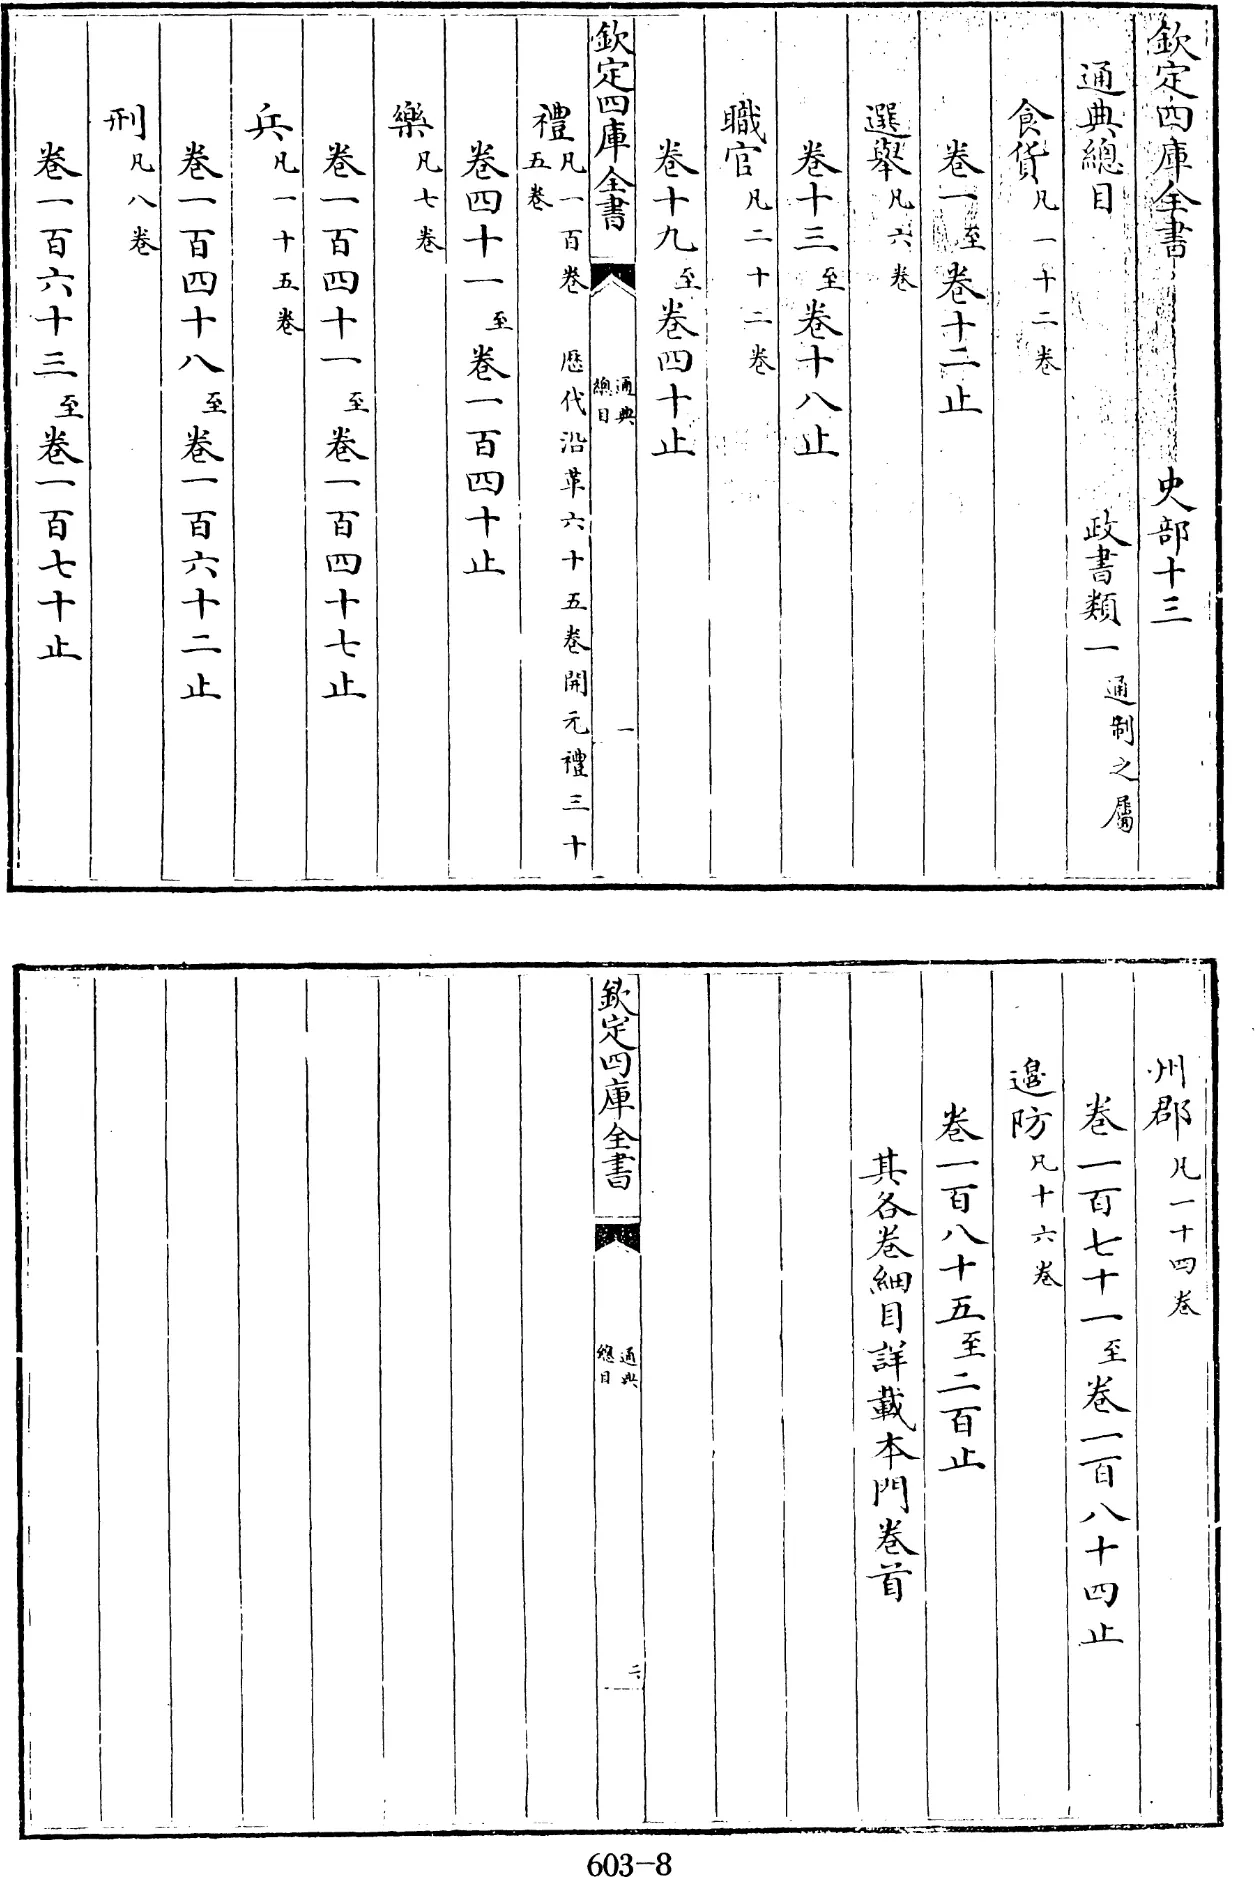 欽定四庫全書 史部十三
通典總目 政書類一通制之屬
食貨凡一十二卷
卷一至卷十二止
選舉凡六卷
卷十三至卷十八止
職官凡二十二卷
卷十九至卷四十止
欽定四庫全書 通典總目 一
禮凡一百卷 歷代沿革六十五卷開元禮三十五卷
卷四十一至卷一百四十止
樂凡七卷
卷一百四十一至卷一百四十七止
兵凡一十五卷
卷一百四十八至卷一百六十二止
刑凡八卷
卷一百六十三至卷一百七十止
州郡凡一十四卷
卷一百七十一至卷一百八十四止
邊防凡十六卷
卷一百八十五至二百止
其各卷細目詳載本門卷首
欽定四庫全書 通典總目 二
603-8